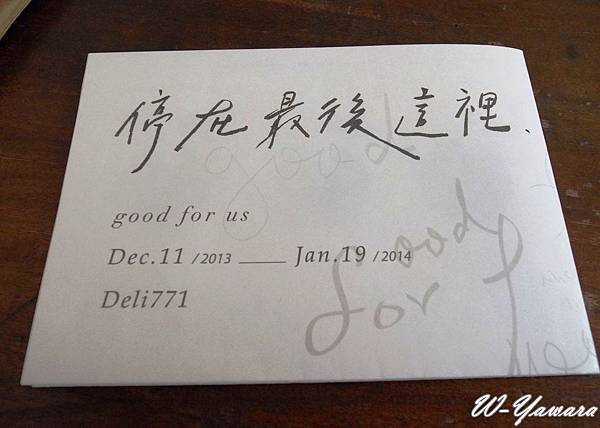 停在最後這裡、
good
good for us
Dec.11 /2013 ____ Jan.19 /2014
Deli771
good
for
W-Yawara